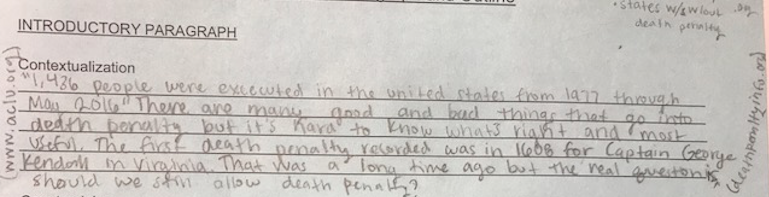 states w/ & w/out
death penalty
INTRODUCTORY PARAGRAPH
Contextualization
"1,436 people were executed in the united states from 1977 through
May 2016" There are many good and bad things that go into
death penalty but it's hard to know whats right and most
useful. The first death penalty recorded was in 1608 for Captain George
Kendall in Virginia. That was a long time ago but the real question is
should we still allow death penalty?
(www.aclu.org)
(deathpenaltyinfo.org)